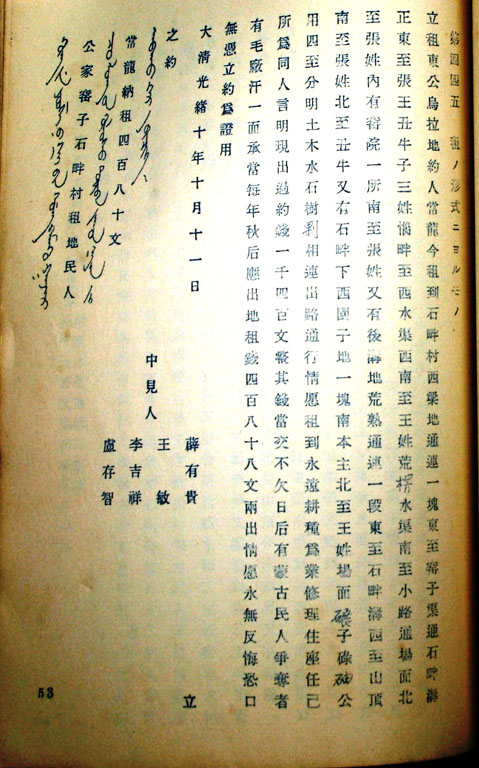 第四四五 租ノ形式ニヨルモノ
立租東公烏拉地約人常龍今租到石畔村西梁地通連一塊東至窰子渠通石畔溝
正東至張王丑牛子三姓惱畔至西水渠西南至王姓荒楞水渠南至小路通場面北
至張姓內有窰院一所南至張姓又有後溝地荒熟通連一段東至石畔溝西至山頂
南至張姓北至丑牛又有石畔下西園子地一塊南本主北至王姓場面碾子碌碡公
用四至分明土木水石樹利相連出路通行情愿租到永遠耕種爲業修理住座任己
所爲同人言明現出過約錢一千四百文整其錢當交不欠日后有蒙古民人爭奪者
有毛廠汗一面承當每年秋后應出地租錢四百八十八文兩出情愿永無反悔恐口
無憑立約爲證用
大淸光緒十年十月十一日 立
中見人 薛有貴
王敏
李吉祥
盧存智
之約
常龍納租四百八十文
公家窰子石畔村租地民人
53